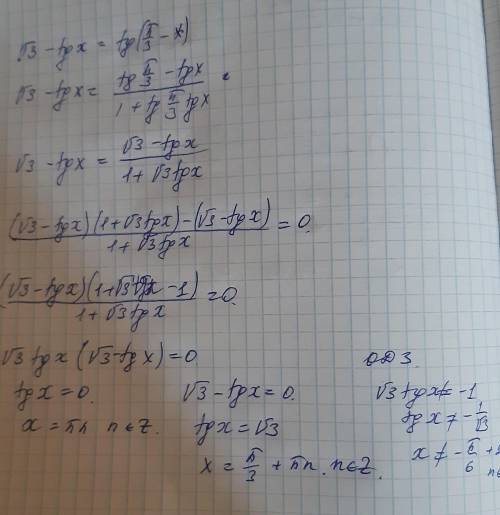 √3 - tg x = tg(π/3 - x)
√3 - tg x = (tg π/3 - tg x)/(1 + tg π/3 tg x)
√3 - tg x = (√3 - tg x)/(1 + √3 tg x)
((√3 - tg x)(1 + √3 tg x) - (√3 - tg x))/(1 + √3 tg x) = 0.
((√3 - tg x)(1 + √3 tg x - 1))/(1 + √3 tg x) = 0.
√3 tg x (√3 - tg x) = 0 ОДЗ.
tg x = 0. √3 - tg x = 0. √3 tg x ≠ -1
x = πn n ∈ Z. tg x = √3 tg x ≠ -1/√3
x = π/3 + πn. n ∈ Z. x ≠ -π/6 +
n ∈